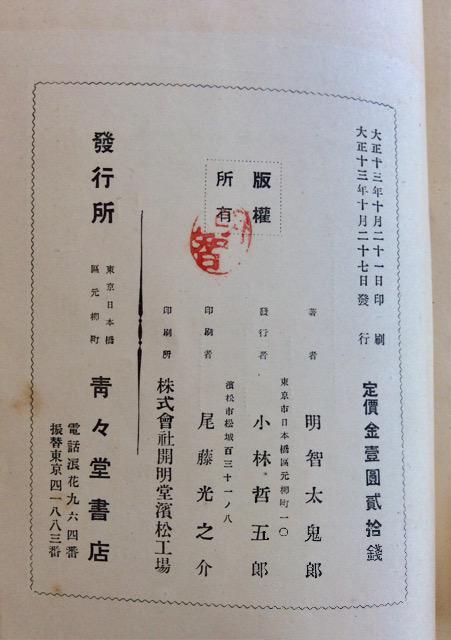 大正十三年十月二十一日印刷
大正十三年十月二十七日發行
定價金壹圓貳拾錢
版權
所有
著者
明智太鬼郎
東京市日本橋區元柳町一〇
發行者
小林哲五郎
濱松市松城百三十一ノ八
印刷者
尾藤光之介
印刷所
株式會社開明堂濱松工場
發行所
東京日本橋
區元柳町
靑々堂書店
電話浪花九六四番
振替東京四一八八三番